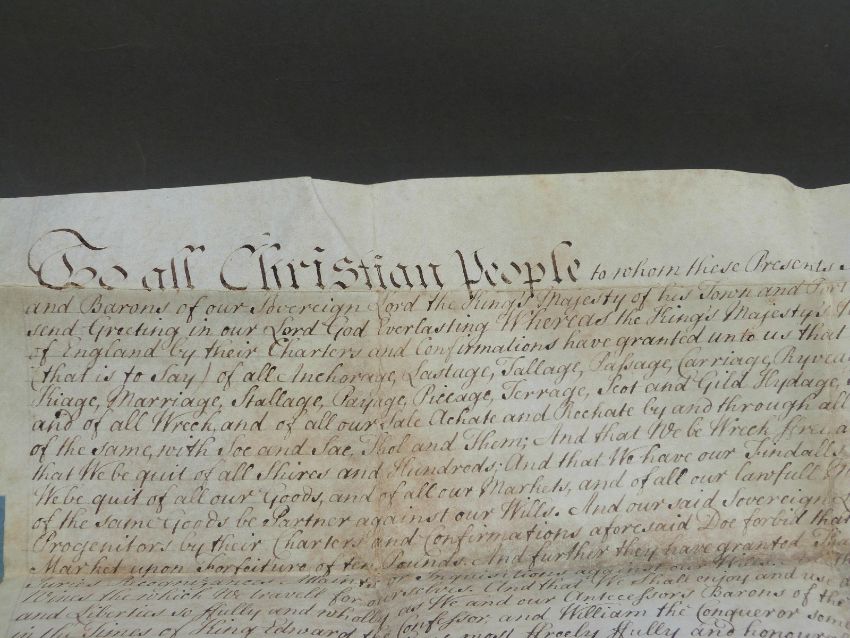 To all Christian People to whom these Presents
and Barons of our Sovereign Lord the King's Majesty of his Town and Port
send Greeting in our Lord God Everlasting Whereas the King's Majestys
of England by their Charters and Confirmations have granted unto us that
(that is to Say) of all Anchorage, Lastage, Tallage, Passage, Carriage,
Kiage, Marriage, Stallage, Payage, Piccage, Terrage, Scot and Gild Hydage,
and of all Wreck, and of all our Sale Achate and Rechate by and through all
of the same, with Soc and Sac, Thol and Them; And that We be Wreck free,
that We be quit of all Shires and Hundreds; And that We have our Fundalls
We be quit of all our Goods, and of all our Markets, and of all our lawfull
of the same Goods be Partner against our Wills. And our said Sovereign
Progenitors by their Charters and Confirmations aforesaid Doe forbid that
Market upon Forfeiture of ten Pounds. And further they have granted
Juries Recognizances or Inquisitions against our Wills.
Wines the which We travell for ourselves. And that We Shall enjoy and use
and Liberties so fully and wholly as We and our Antecessors Barons of the
in the Times of King Edward the Confessor, and William the Conqueror some
most freely fully and